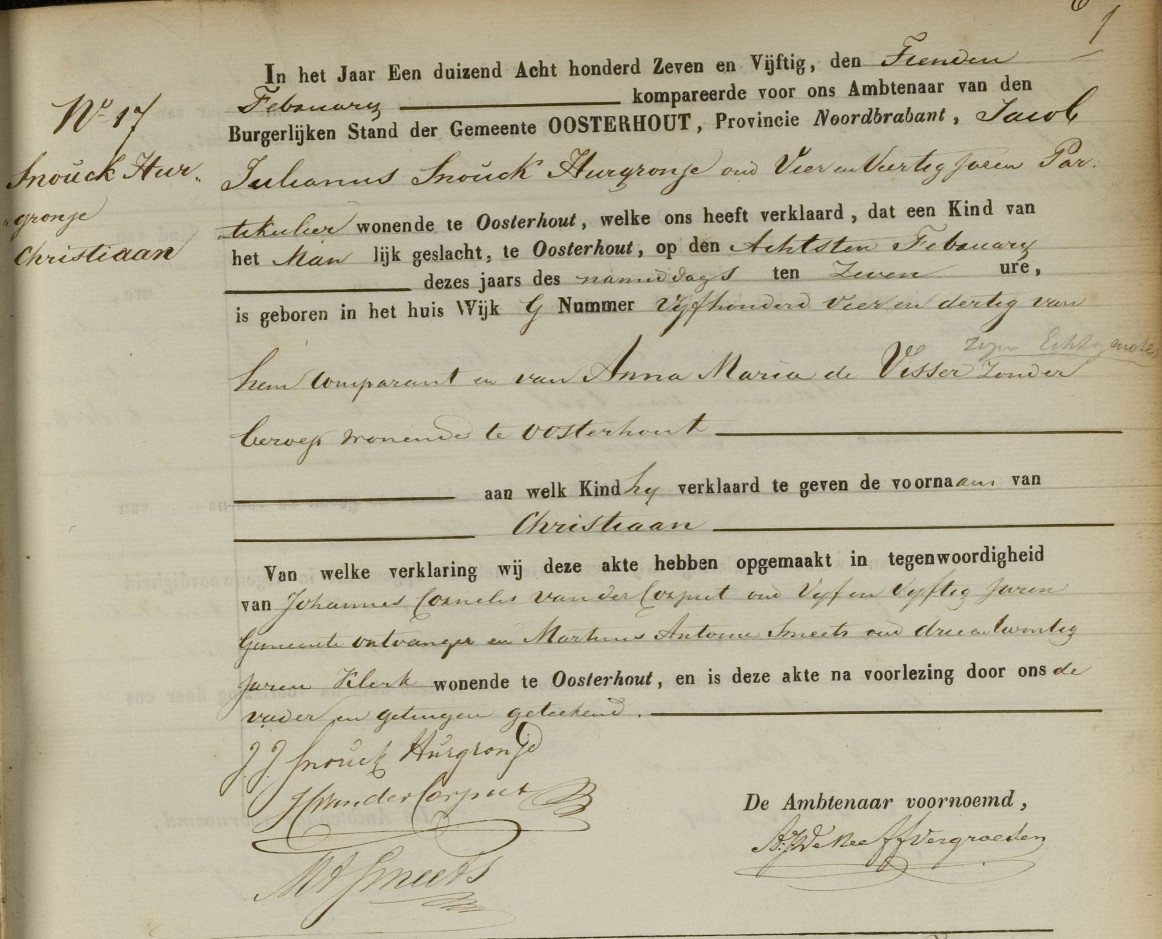 1
In het Jaar Een duizend Acht honderd Zeven en Vijftig, den Tienden
February kompareerde voor ons Ambtenaar van den
Burgerlijken Stand der Gemeente OOSTERHOUT, Provincie Noordbrabant, Jacob
Julianus Snouck Hurgronje oud Vier en Veertig Jaren Par-
tikulier wonende te Oosterhout, welke ons heeft verklaard, dat een Kind van
het Man lijk geslacht, te Oosterhout, op den Achtsten February
dezes jaars des namiddags ten Zeven ure,
is geboren in het huis Wijk G Nummer Vyfhonderd vier en dertig van
zyn Echtgenote
hem Comparant en van Anna Maria de Visser zonder
beroep wonende te Oosterhout
aan welk Kind hy verklaard te geven de voornaam van
Christiaan
Van welke verklaring wij deze akte hebben opgemaakt in tegenwoordigheid
van Johannes Cornelis van der Corput oud Vyf en Vyftig Jaren
Gemeente ontvanger en Martinus Antonie Smeets oud drie en twintig
Jaren Klerk wonende te Oosterhout, en is deze akte na voorlezing door ons de
vader en getuigen geteekend.
J. J. Snouck Hurgronje
van der Corput
M A Smeets
De Ambtenaar voornoemd,
No 17
Snouck Hur-
gronje
Christiaan